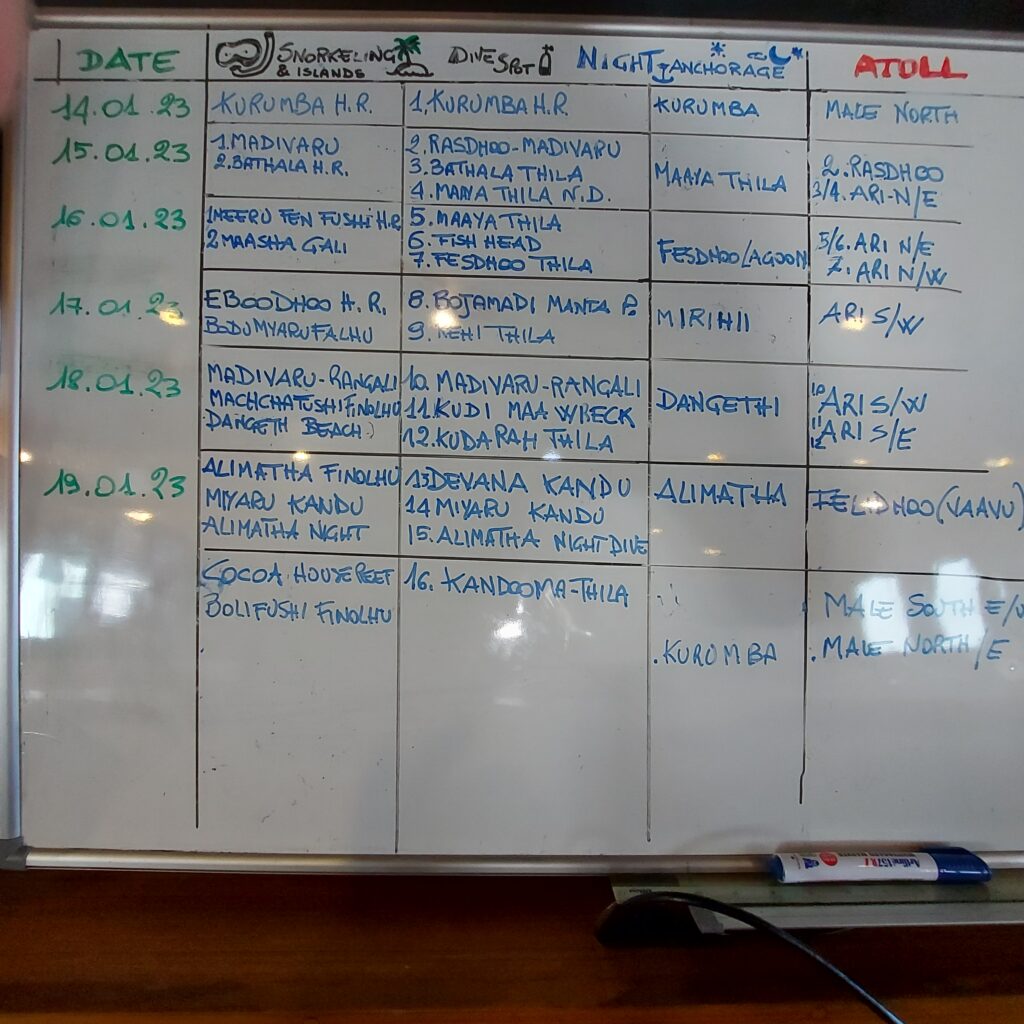 DATE SNORKELING & ISLANDS DIVE SPOT NIGHT ANCHORAGE ATOLL
14.01.23 KURUMBA H.R. 1. KURUMBA H.R. KURUMBA MALE NORTH
15.01.23 1. MADIVARU 2. RASDHOO-MADIVARU MAAYA THILA 2. RASDHOO
2. BATHALA H.R. 3. BATHALA THILA 3/4. ARI-N/E
4. MAAYA THILA N.D.
16.01.23 1 NEERU FEN FUSHI H.R 5. MAAYA THILA FESDHOO LAGOON 5/6. ARI N/E
2 MAASHA GALI 6. FISH HEAD 7. ARI N/W
7. FESDHOO THILA
17.01.23 EBOODHOO H.R. 8. BOJAMADI MANTA P. MIRIHII ARI S/W
BODUMYARUFALHU 9. REHI THILA
18.01.23 MADIVARU-RANGALI 10. MADIVARU-RANGALI DANGETHI 10 ARI S/W
MACHCHAFUSHI FINOLHU 11. KUDI MAA WRECK 11 12 ARI S/E
DANGETH BEACH 12. KUDARAH THILA
19.01.23 ALIMATHA FINOLHU 13 DEVANA KANDU ALIMATHA FELIDHOO (VAAVU)
MIYARU KANDU 14 MIYARU KANDU
ALIMATHA NIGHT 15. ALIMATHA NIGHT DIVE
COCOA HOUSE REEF 16. KANDOOMA-THILA MALE SOUTH E/
BOLIFUSHI FINOLHU
. KURUMBA . MALE NORTH/E
Artline 157R